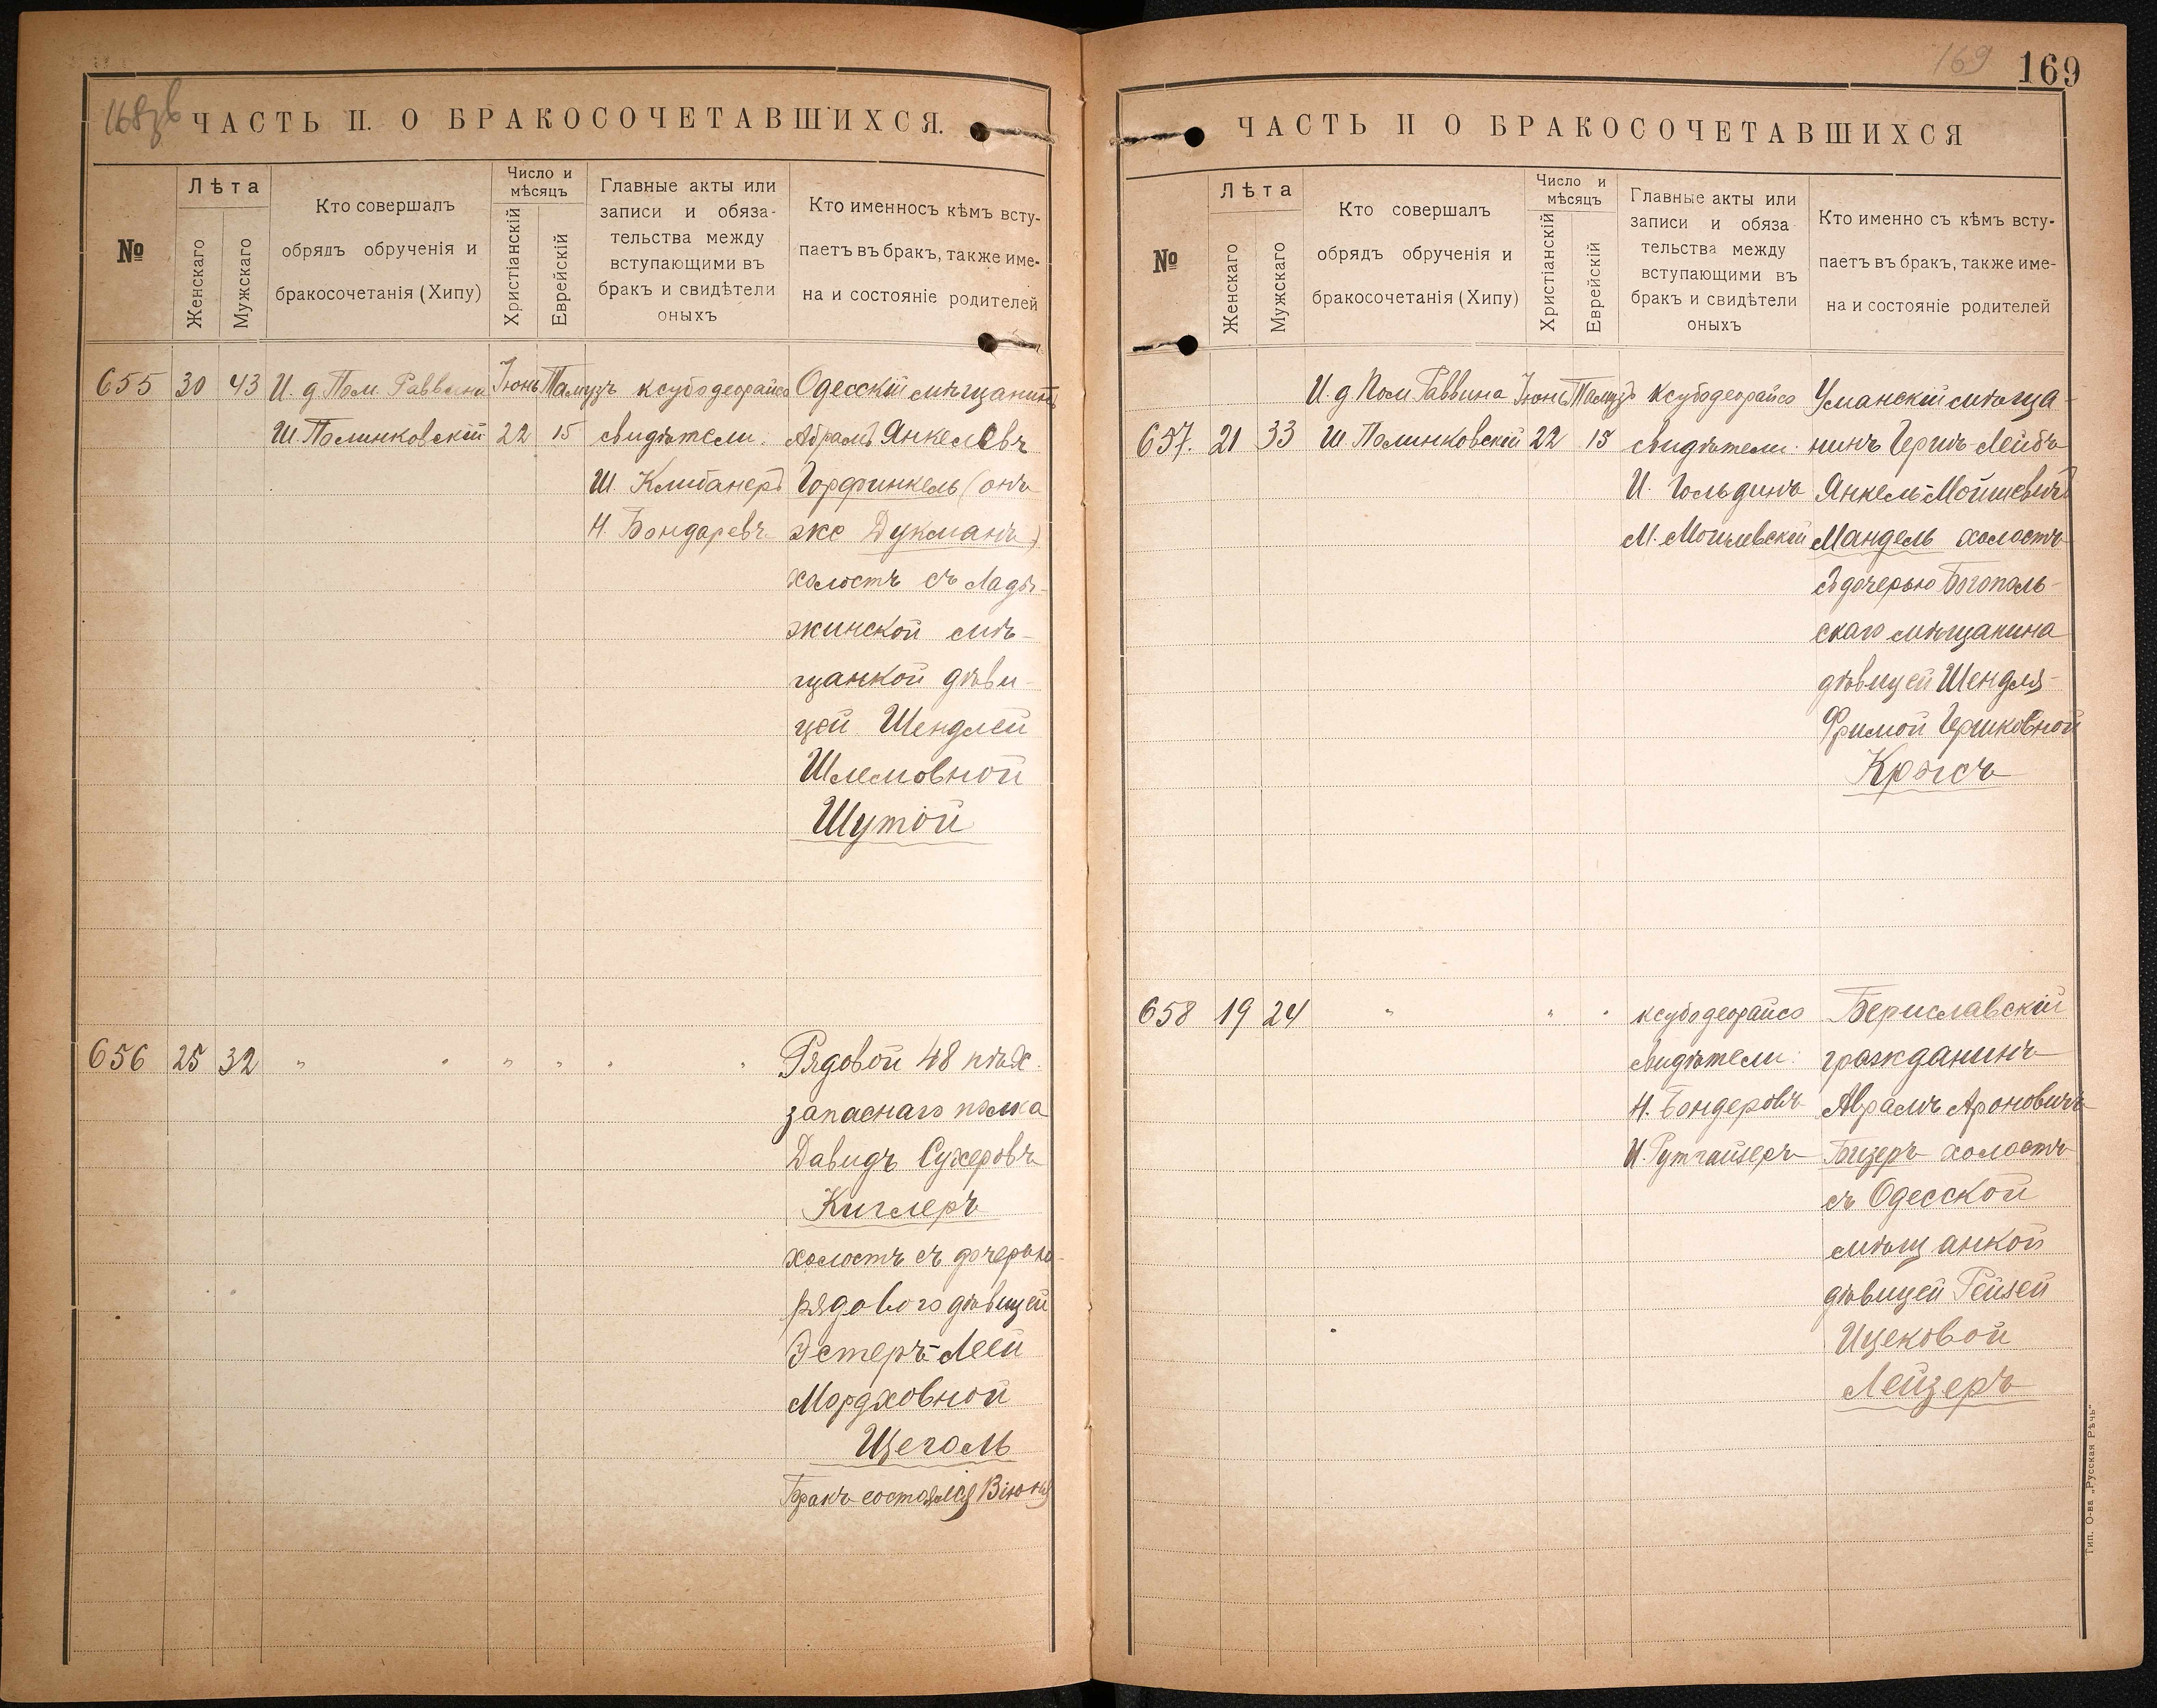 168зв
ЧАСТЬ II. О БРАКОСОЧЕТАВШИХСЯ.
№
Лѣта
Женскаго
Мужскаго
Кто совершалъ
обрядъ обрученія и
бракосочетанія (Хипу)
Число и
мѣсяцъ
Христіанскій
Еврейскій
Главные акты или
записи и обяза-
тельства между
вступающими въ
бракъ и свидѣтели
оныхъ
Кто именносъ кѣмъ всту-
паетъ въ бракъ, также име-
на и состояніе родителей
655 30 43 И. д. Пом. Раввина Іюнь Тамузъ ксубодеорайсо Одесскій мѣщанинъ
Ш. Полинковскій 22 15 свидѣтели: Абрамъ Янкелевъ
Ш. Клибанеръ Горфинкель (онъ
Н. Бондаревъ же Дукманъ)
холостъ съ Лады-
жинской мѣ-
щанкой дѣви-
цей Шендлей
Шлемовной
Шутой
656 25 32 " " " " " " Рядовой 48 пѣх.
запаснаго полка
Давидъ Сухеровъ
Киглеръ
холостъ съ дочерью
рядового дѣвицей
Эстеръ-Леей
Мордховной
Щеголь
Бракъ состоялся 13 іюня
169
169
ЧАСТЬ II О БРАКОСОЧЕТАВШИХСЯ
№
Лѣта
Женскаго
Мужскаго
Кто совершалъ
обрядъ обрученія и
бракосочетанія (Хипу)
Число и
мѣсяцъ
Христіанскій
Еврейскій
Главные акты или
записи и обяза
тельства между
вступающими въ
бракъ и свидѣтели
оныхъ
Кто именно съ кѣмъ всту-
паетъ въ бракъ, также име-
на и состояніе родителей
И. д Пом Раввина Іюнь Тамузъ ксубодеорайсо Уманскій мѣща-
657. 21 33 Ш. Полинковскій 22 15 свидѣтели: нинъ Гершъ-Лейбъ
И. Гольдинъ Янкель-Мойшевичъ
М. Могилевскій Мандель холостъ
съ дочерью Богополь-
скаго мѣщанина
дѣвицей Шендля-
Фримой Гершковной
Крысъ
658 19 24 " " " ксубодеорайсо Бериславскій
свидѣтели: гражданинъ
Н. Бондеровъ Абрамъ Ароновичъ
И. Рутгайзеръ Бизеръ холостъ
съ Одесской
мѣщанкой
дѣвицей Рейзей
Ицековой
Лейзеръ
Тип. О-ва „Русская Рѣчь"